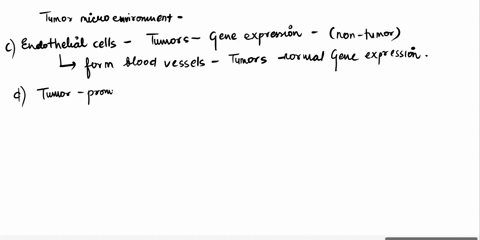 Tumor micro environment -
c) Endothelial cells - Tumors - Gene expression - (non-tumor)
↳ form blood vessels - Tumors normal Gene expression.
d) Tumor - prom